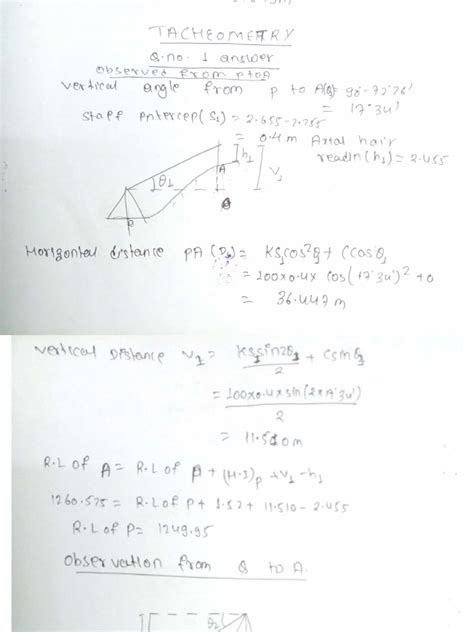 TACHEOMETRY
Q.no. 1 answer
Observed from P to A
vertical angle from P to A(θ1) = 90-72°26'
= 17°34'
Staff Intercep(S1) = 2.655-2.255
= 0.4m Axial hair
readin(h1) = 2.455
h1
V1
A
θ1
P
Horizontal distance PA (D1) = KS1cos²θ1 + Ccosθ1
= 100x0.4x cos(17°34')² + 0
= 36.447m
Vertical Distance V1 = KS1sin2θ1/2 + Csinθ1
= 100x0.4xsin(2x17°34')/2
= 11.510m
R.L of A = R.L of P + (H.I)p + V1 - h1
1260.525 = R.L of P + 1.52 + 11.510 - 2.455
R.L of P = 1249.95
Observation from Q to A.
θ2